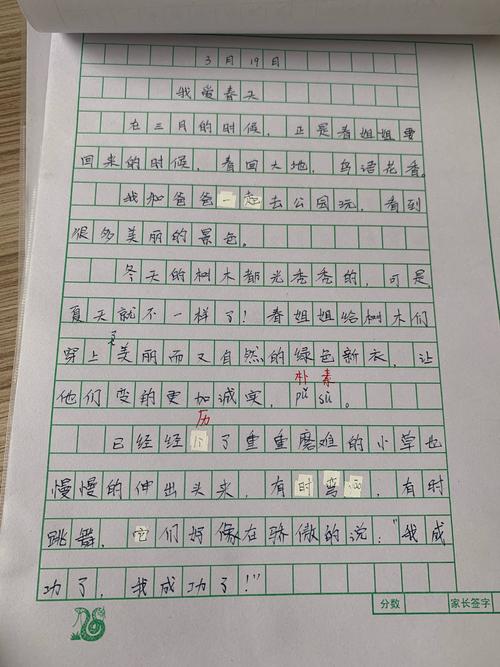 3月19日
我爱春天
在三月的时候，正是春姐姐要
回来的时候，春回大地，鸟语花香。
我和爸爸一起去公园玩，看到
很多美丽的景色。
冬天的树木都光秃秃的，可是
夏天就不一样了！春姐姐给树木们
穿上更美丽而又自然的绿色新衣，让
朴素
他们变的更加诚实，pǔ sù。
历
已经经了重重磨难的小草也
慢慢的伸出头来，有时弯，有时
跳舞，它们好像在骄傲的说："我成
功了，我成功了！"
分数
家长签字